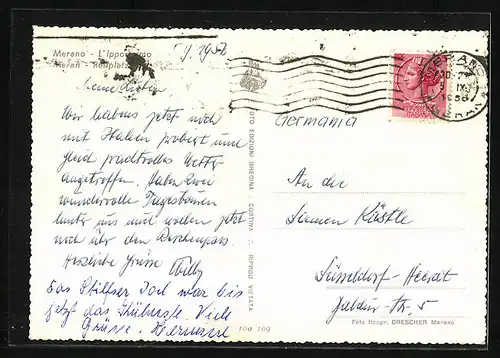 Merano - L'Ippodromo
Meran - Rennplatz
Meine Lieben
Wir haben jetzt noch
mit Italien probiert und
gleich prachtvolles Wetter
angetroffen. Haben zwei
wundervolle Tagestouren
hinter uns und wollen jetzt
noch über den Reschenpass.
Herzliche Grüsse Willy
Das Stilfser Joch war bis
jetzt das Kühnste. Viele
Grüsse
Germania
An die
Firmen Kästle
Düsseldorf-Heerdt
Str. 5
FOTO EDIZIONI GHEDINA CORTINA - RIPROD. VIETATA
Foto Rippr. DRESCHER Merano
MERANO
MERAN